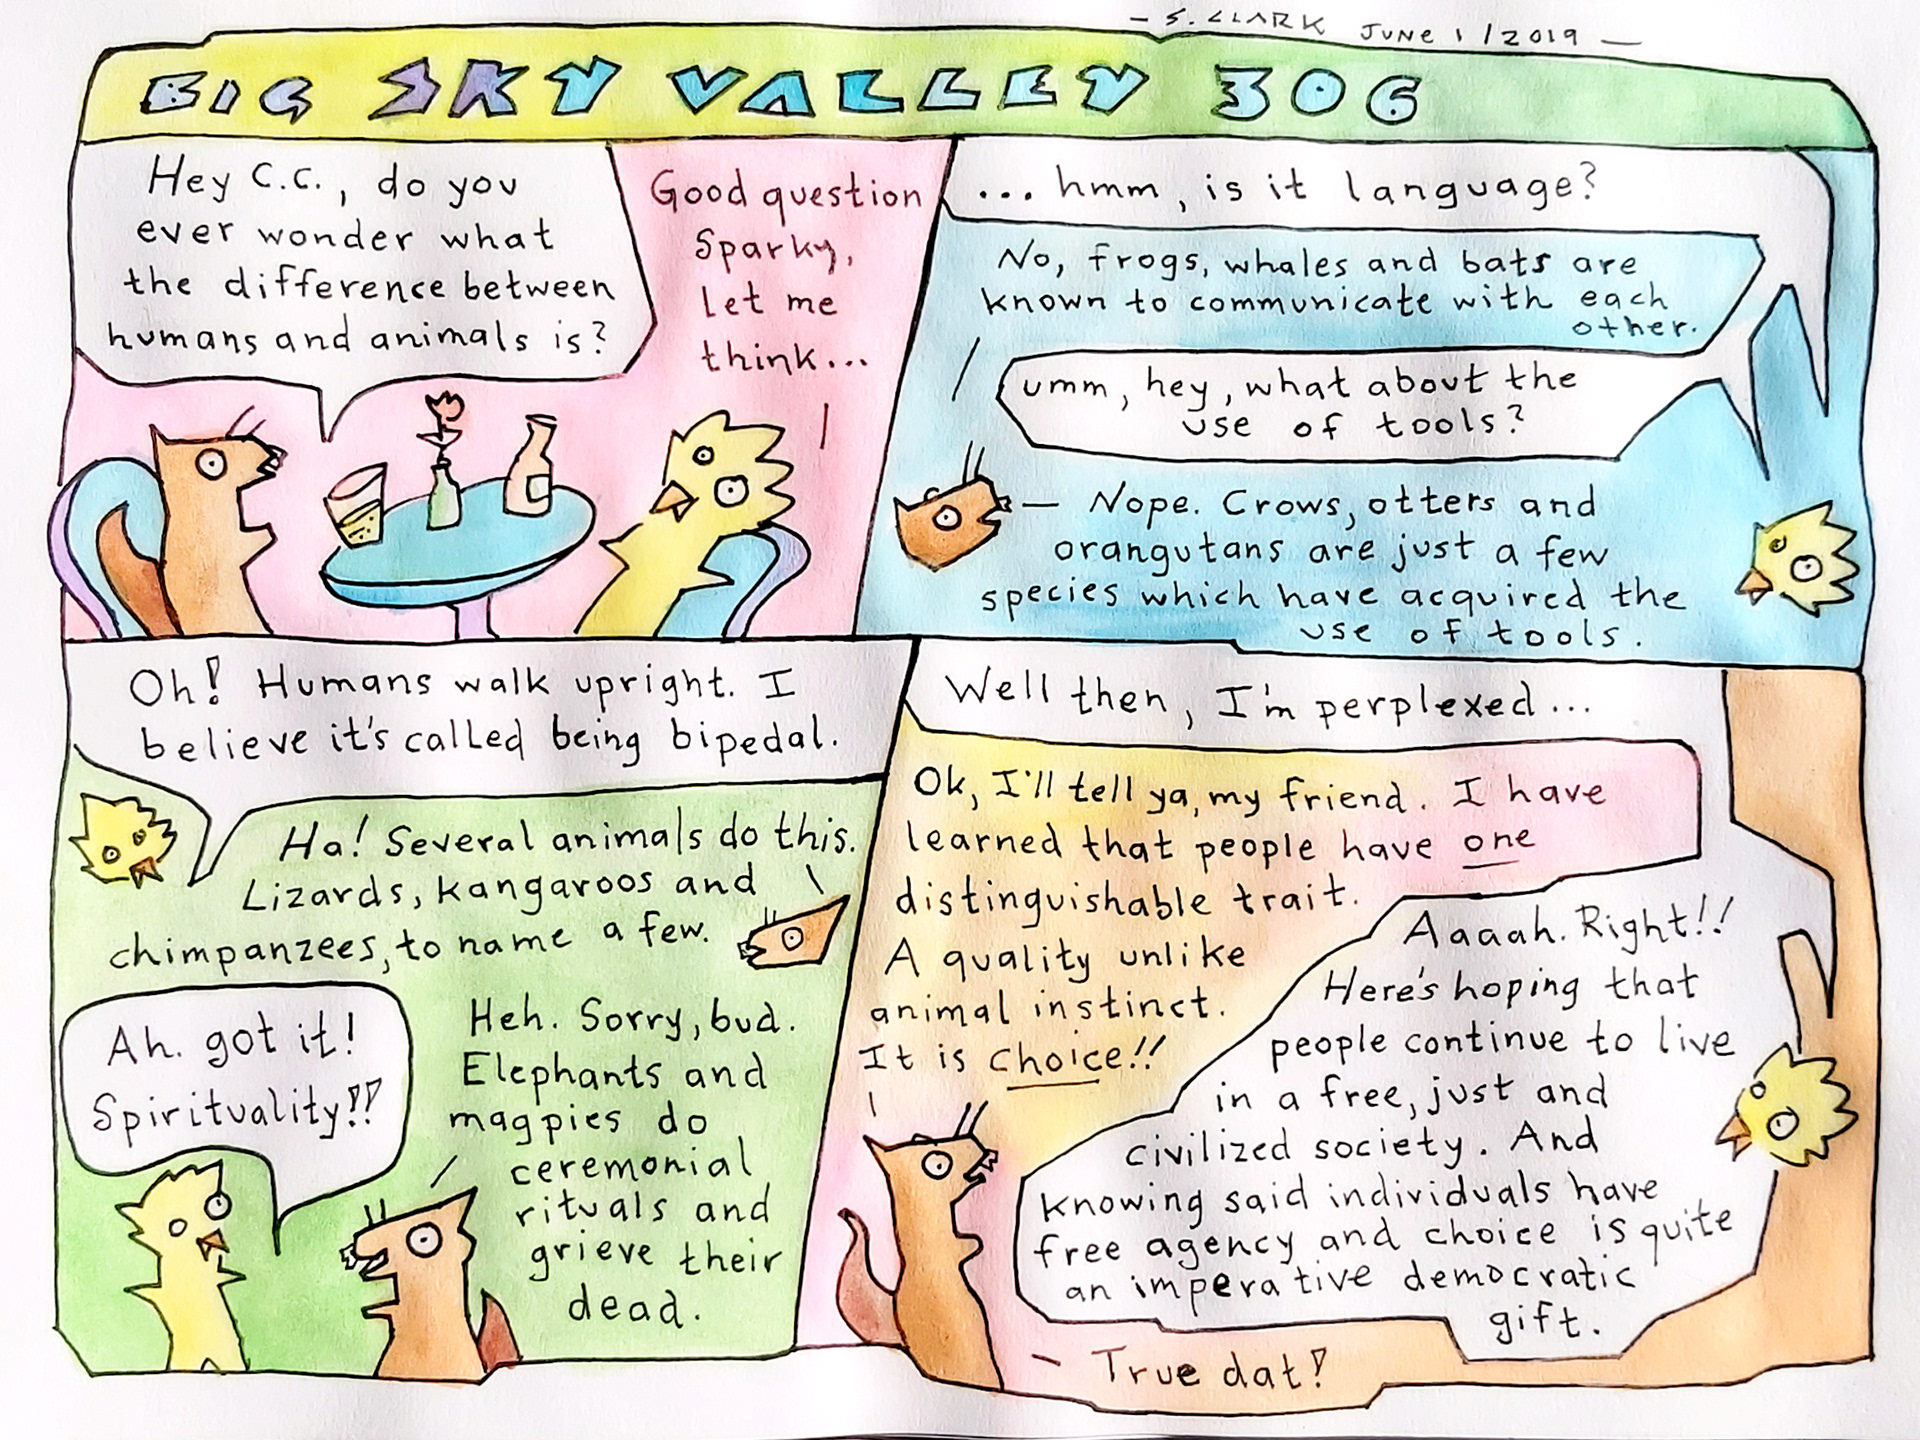 - S. CLARK JUNE 1/2019 -
BIG SKY VALLEY 306
Hey C.C., do you
ever wonder what
the difference between
humans and animals is?
Good question
Sparky,
let me
think...
... hmm, is it language?
No, frogs, whales and bats are
known to communicate with each
other.
umm, hey, what about the
use of tools?
Nope. Crows, otters and
orangutans are just a few
species which have acquired the
use of tools.
Oh! Humans walk upright. I
believe it's called being bipedal.
Ha! Several animals do this.
Lizards, kangaroos and
chimpanzees, to name a few.
Ah. got it!
Spirituality!!
Heh. Sorry, bud.
Elephants and
magpies do
ceremonial
rituals and
grieve their
dead.
Well then, I'm perplexed...
Ok, I'll tell ya, my friend. I have
learned that people have one
distinguishable trait.
A quality unlike
animal instinct.
It is choice!!
Aaaah. Right!!
Here's hoping that
people continue to live
in a free, just and
civilized society. And
knowing said individuals have
free agency and choice is quite
an imperative democratic
gift.
True dat!